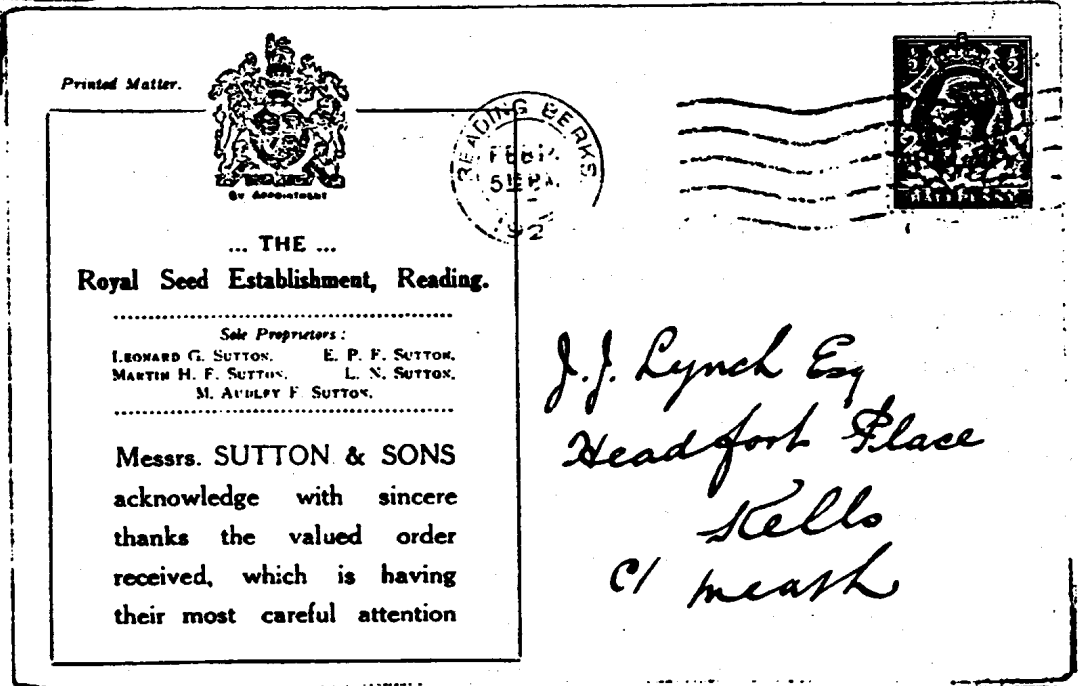 Printed Matter.
BY APPOINTMENT
... THE ...
Royal Seed Establishment, Reading.
Sole Proprietors :
LEONARD G. SUTTON, E. P. F. SUTTON,
MARTIN H. F. SUTTON, L. N. SUTTON,
M. AUDLEY F. SUTTON.
Messrs. SUTTON & SONS
acknowledge with sincere
thanks the valued order
received, which is having
their most careful attention
READING BERKS.
FEB
192
½ ½
HALFPENNY
J. J. Lynch Esq
Headfort Place
Kells
C/ Meath